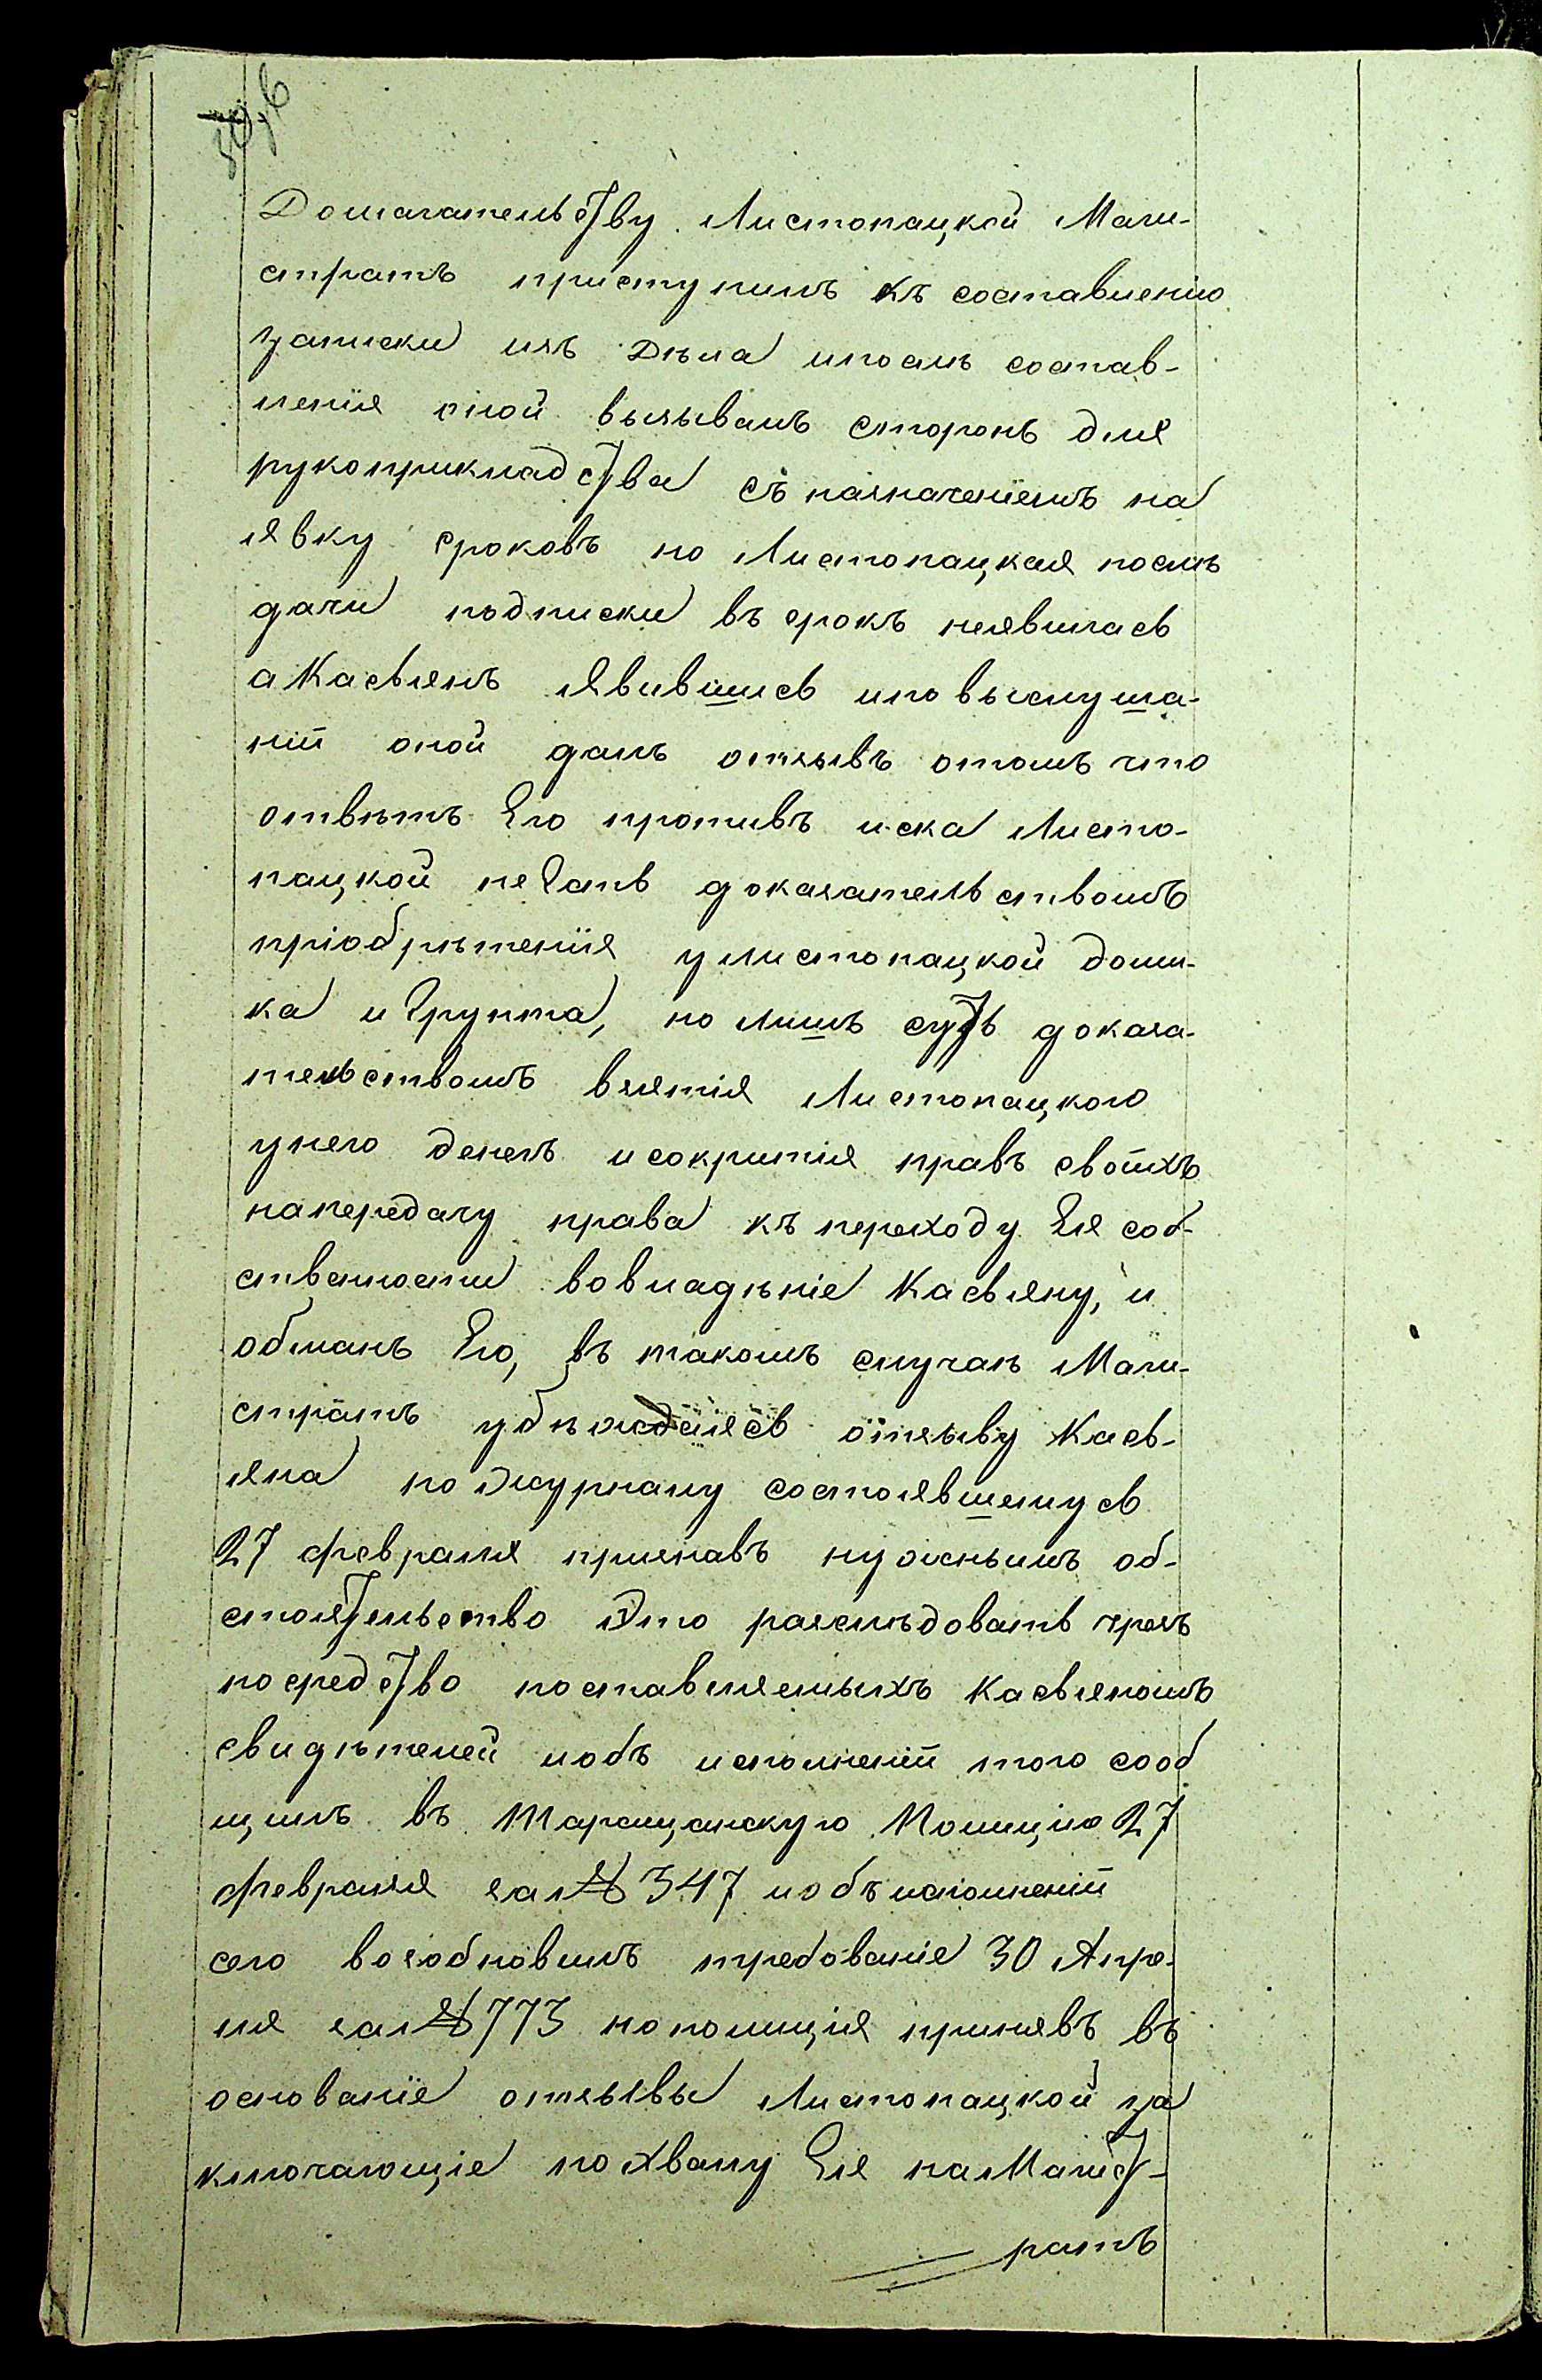 Домагательству Листопацкой Маги-
стратъ приступилъ къ составленію
записки изъ Дѣла ипослѣ состав-
ленія оной вызывалъ сторонъ для
рукоприкладства съ назначеніемъ на
явку сроковъ но Листопацкая послѣ
дачи подписки въ срокъ неявилась
а Касьянъ явившись ино выслуша-
ніи оной далъ отзывъ отомъ что
отвѣтъ Его противъ иска Листо-
пацкой не Есть доказательствомъ
пріобрѣтенія улистопацкой доми-
ка и Грунта, но лишь суть доказа-
тельствомъ взятія Листопацкого
унего денегъ исокритія правъ своихъ
напередачу права къ переходу Ея соб-
ственности вовладѣніе Касьяну, и
обманъ Его, въ такомъ случаѣ Маги-
стратъ убѣждаясь отзыву Кась-
яна по Журналу состоявшемусь
27 февраля признавъ нужнымъ об-
стоятельство Это разслѣдовать чрезъ
посредство поставляемыхъ Касьяномъ
свидѣтелей иобъ исполненіи того сооб
щилъ въ Таращанскую Полицію 27
февраля за № 347 иобъ исполненіи
сего возобновилъ требованіе 30 Апре-
ля за № 773 но полиція принявъ въ
основаніе отзывы Листопацкой за
ключающіе похвалу Ея на Магист-
ратъ